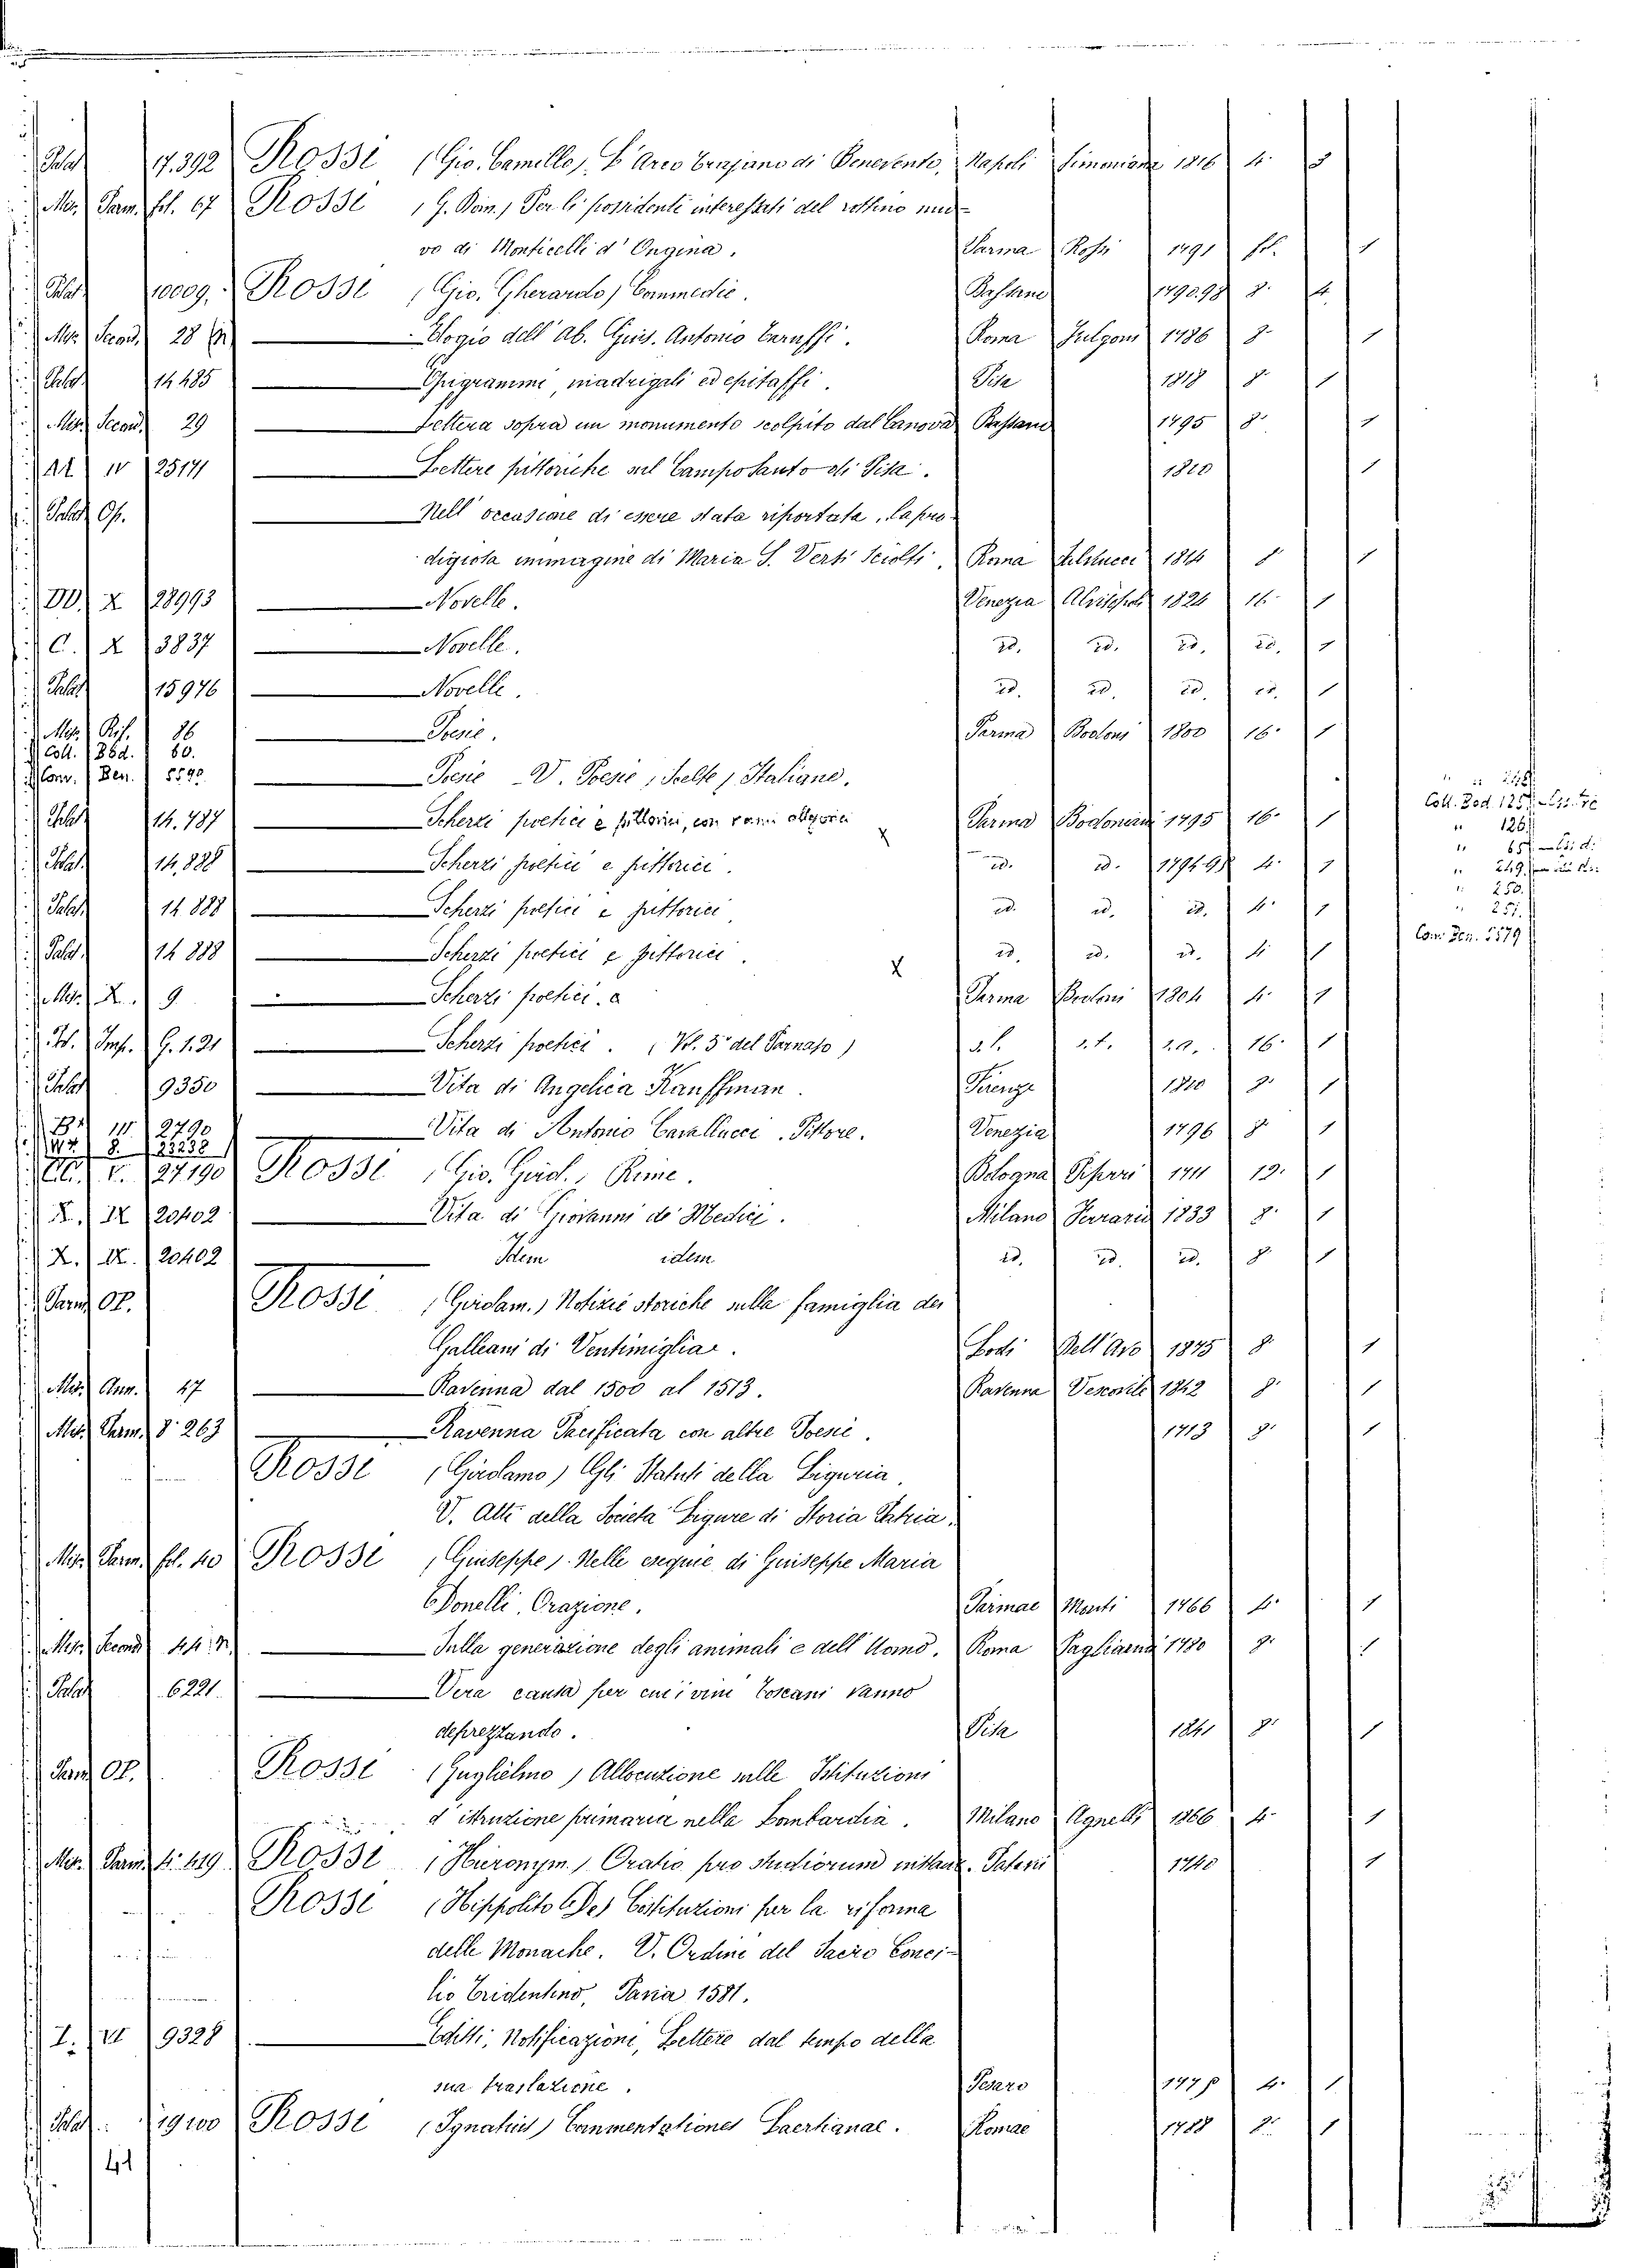 Palat 17.392 Rossi (Gio. Camillo) L'Arco Trajano di Benevento, Napoli Simoniana 1816 4.
Misc. Parm. fol. 67 Rossi (G. Dom.) Per li possidenti interessati del
vo di Monticelli d'Ongina. Parma Rossi 1791 fol. 1
Palat 10009. Rossi (Gio. Gherardo) Commedie. Bassano 1790.98 8. 4.
Misc. Second. 28 Elogio dell'Ab. Guis. Antonio Taruffi. Roma Fulgoni 1786 8. 1
Palat 14485 Epigrammi, madrigali ed epitaffi. Pisa 1818 8. 1
Misc. Second. 29 Lettera sopra un monumento scolpito dal Canova Bassano 1795 8. 1
AA IV 25171 Lettere pittoriche sul Camposanto di Pisa. 1810 1
Palat Op. Nell'occasione di essere stata riportata, la pro-
digiosa immagine di Maria S. Versi Sciolti. Roma 1814 8 1
DD. X 28993 Novelle. Venezia Alvisopoli 1824 16 1
C. X 3837 Novelle. id. id. id. id. 1
Palat 15976 Novelle. id. id. id. id. 1
Misc. Rif. 86 Poesie. Parma Bodoni 1800 16. 1
Coll. Bod. 60.
Conv. Ben. 5590 Poesie V. Poesie (Scelte) Italiane.
Palat 14.787 Scherzi poetici e pittorici, con rami allegorici x Parma Bodoniani 1795 16. 1
Palat. 14,888 Scherzi poetici e pittorici. id. id. 4. 1
Palat 14888 Scherzi poetici e pittorici id. id. id. 4. 1
Palat. 14888 Scherzi poetici e pittorici. x id. id. id. 4 1
Misc. X. 9 Scherzi poetici. Parma Bodoni 1804 4. 1
Imp. G. 1.21 Scherzi poetici. (Vol. 3° del Parnaso) s.l. s.t. s.a. 16. 1
Palat 9350 Vita di Angelica Kauffman. Firenze 1810 8. 1
BB III 2790 Vita di Antonio Cavallucci, Pittore. Venezia 1796 8 1
V. 27190 Rossi (Gio. Girol.) Rime. Bologna Pisarri 1711 12. 1
X. IX 20402 Vita di Giovanni de Medici. Milano Ferrario 1833 8. 1
X. IX. 20402 Idem idem id. id. id. 8 1
Parm. Op. Rossi (Girolam.) Notizie storiche sulla famiglia dei
Galleani di Ventimiglia. Lodi Dell'Avo 1875 8 1
Misc. Ann. 47 Ravenna dal 1500 al 1513. Ravenna 1842 8. 1
Misc. Parm. 8° 263 Ravenna Pacificata con altre Poesie. 1713 8. 1
Rossi (Girolamo) Gli Statuti della Liguria
V. Atti della Società Ligure di Storia Patria.
Misc. Parm. fol. 40 Rossi (Giuseppe). Nelle esequie di Guiseppe Maria
Donelli, Orazione. Parmae Monti 1766 4. 1
Misc. Second. Sulla generazione degli animali e dell'Uomo. Roma Pagliarini 1780 8. 1
Palat 6221. Vera causa per cui i vini Toscani vanno
deprezzando. Pisa 1841 8. 1
Parm. Op. Rossi (Guglielmo) Allocuzione sulle Istituzioni
d'istruzione primaria nella Lombardia. Milano Agnelli 1866 4. 1
Misc. Parm. 4°. 419 Rossi (Hieronym.) Oratio pro studiorum instaur. Patavi 1740 1
Rossi (Hippolito De) Costituzioni per la riforma
delle Monache. V. Ordine del Sacro Conci-
lio Tridentino, Pavia 1581.
I. VI 9328 Editti, Notificazioni, Lettere dal tempo della
sua traslazione. Pesaro 4. 1
Palat. 19200 Rossi (Ignatius) Commentationes Laertianae. Romae 1788 8. 1
41
Coll. Bod. 125
126
65
249
250.
251.
Con. Ben. 5579